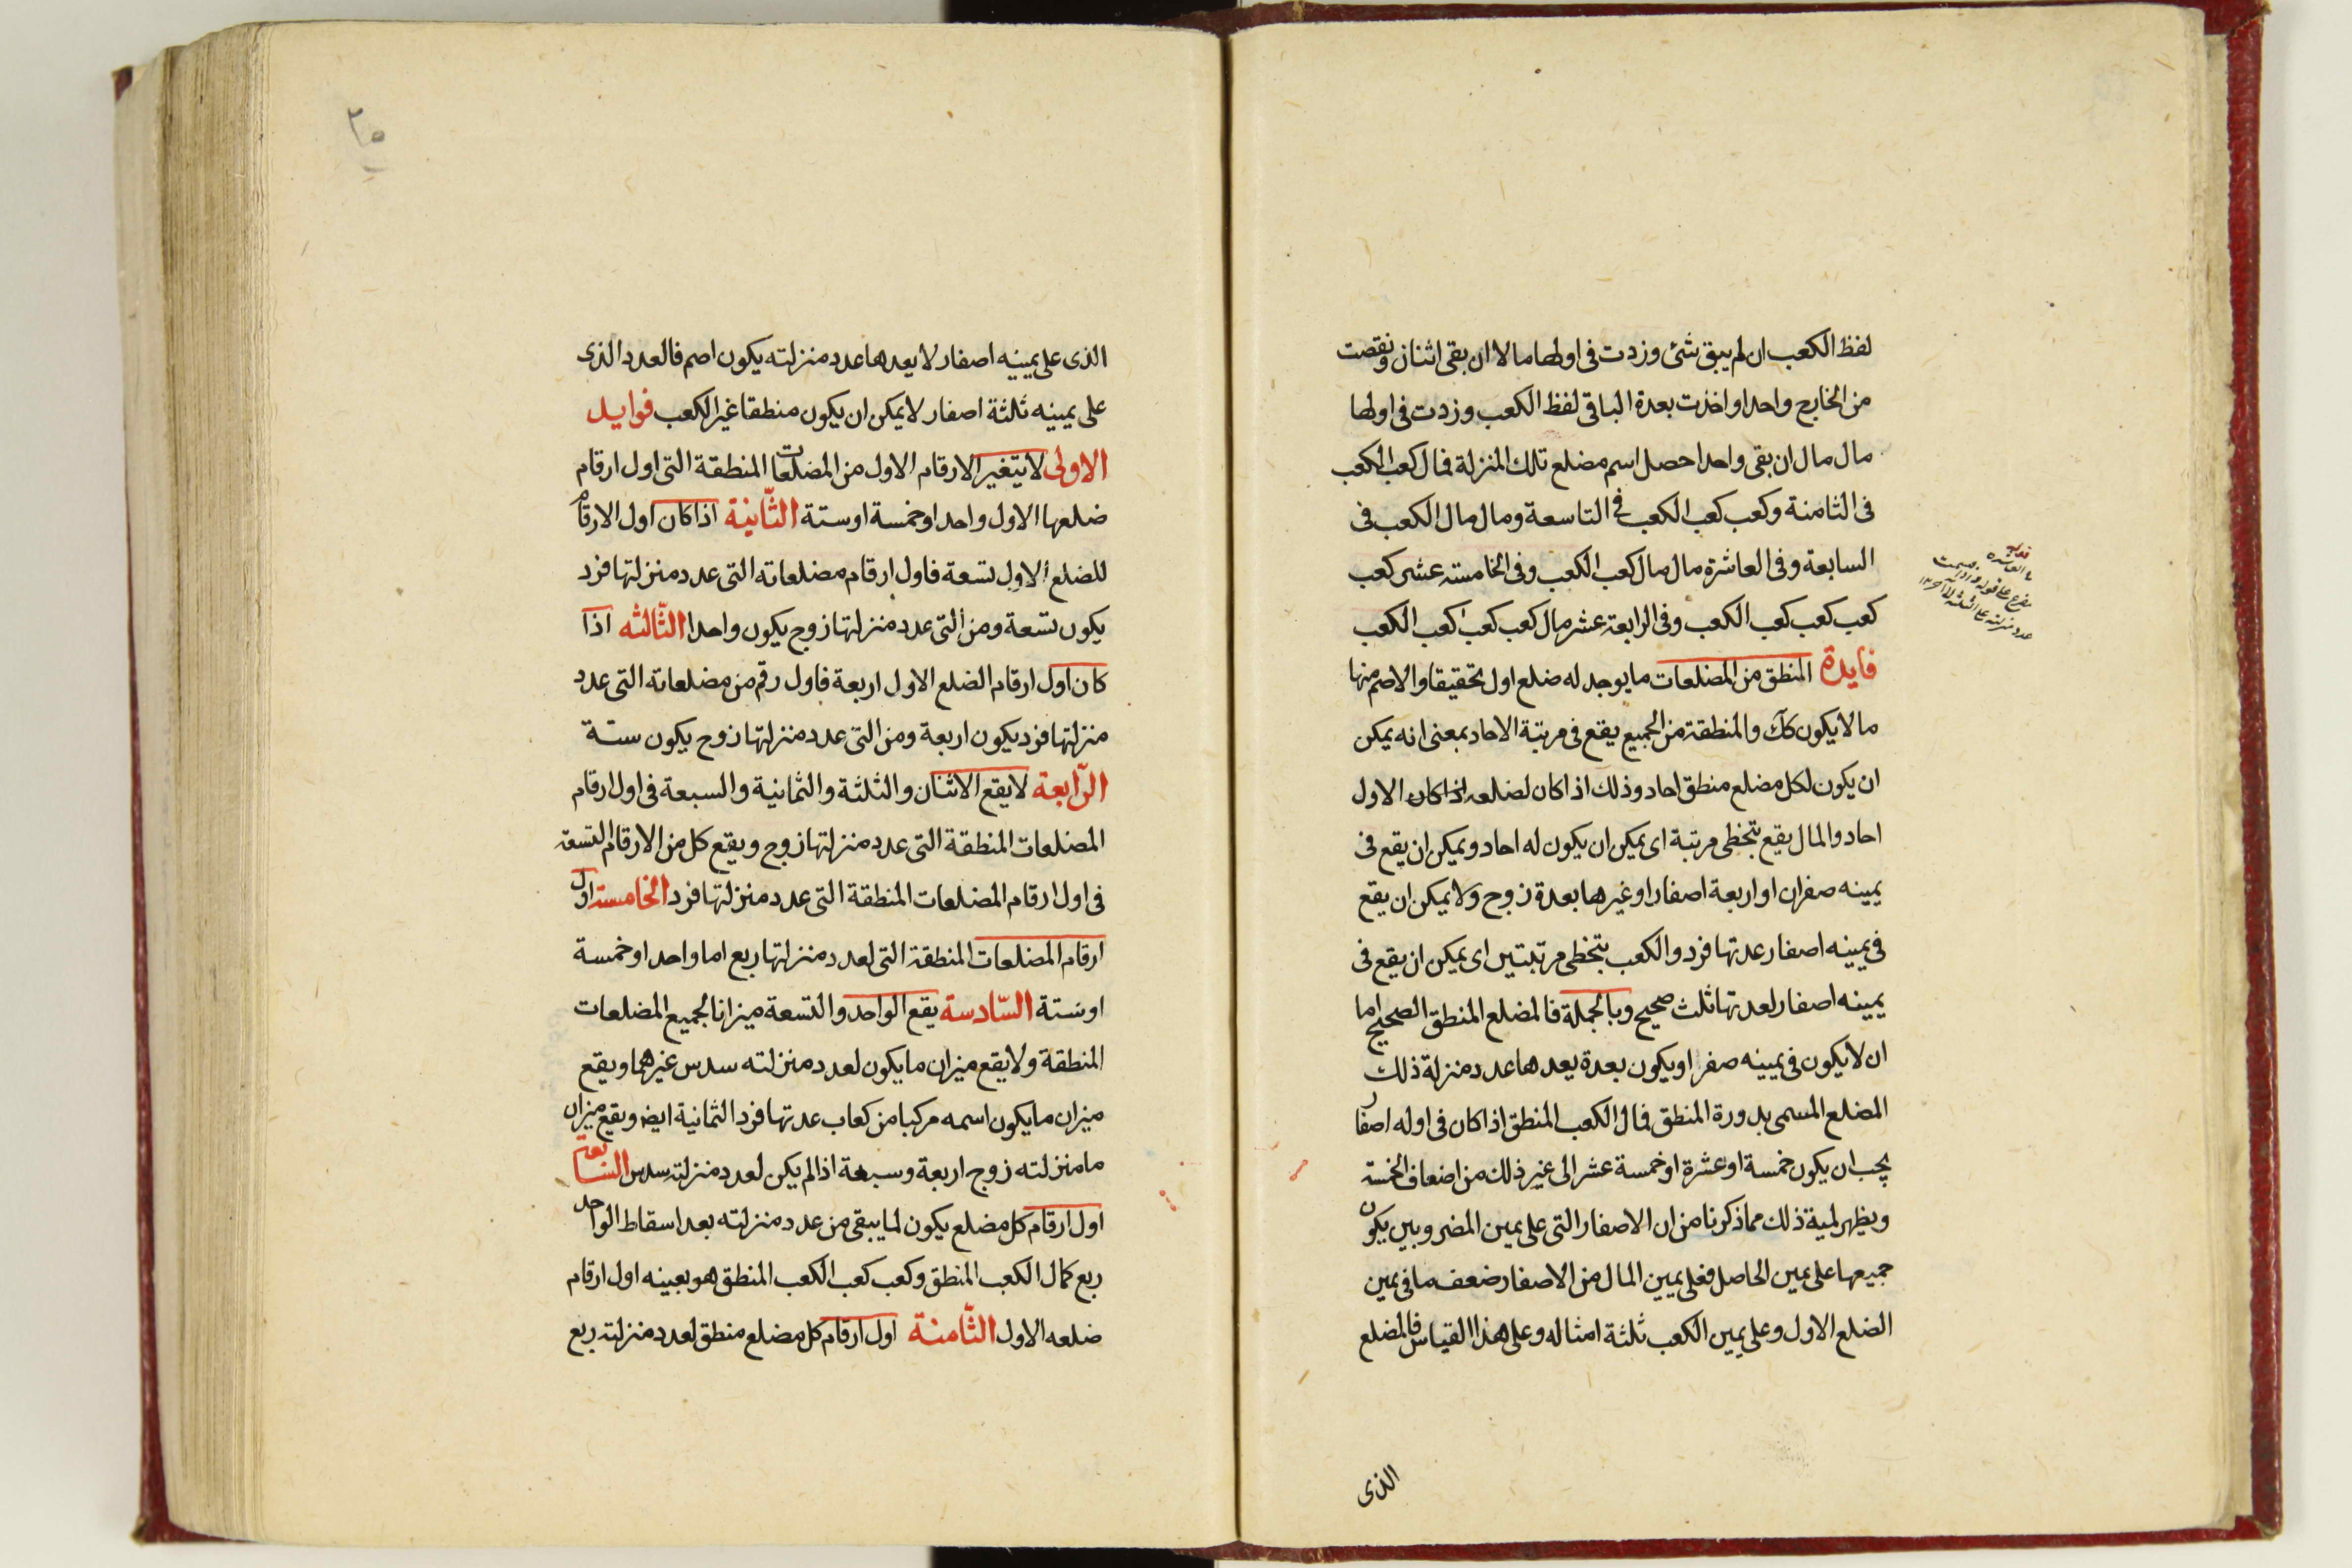 لفظ الكعب ان لم يبق شئ وزدت فى اولها مالا ان بقى اثنان ونقصت
من الخارج واحدا واخذت بعدة الباقى لفظ الكعب وزدت فى اولها
مال مال ان بقى واحدا حصل اسم مضلع تلك المنزلة فمال كعب الكعب
فى الثامنة وكعب كعب الكعب فى التاسعة ومال مال الكعب فى
السابعة وفى العاشرة مال مال كعب الكعب وفى الخامسة عشر كعب
كعب كعب كعب الكعب وفى الرابعة عشر مال كعب كعب كعب الكعب
فايدة المنطق من المضلعات ما يوجد له ضلع اول تحقيقا والاصم منها
ما لا يكون كك والمنطقة من الجميع يقع فى مرتبة الاحاد بمعنى انه يمكن
ان يكون لكل مضلع منطق احاد وذلك اذا كان لضلعه اذا كان الاول
احاد والمال يقع بتخطى مرتبة اى يمكن ان يكون له احاد ويمكن ان يقع فى
يمينه صفران او اربعة اصفار او غيرها بعدة زوج ولا يمكن ان يقع
فى يمينه اصفار عدتها فرد والكعب بتخطى مرتبتين اى يمكن ان يقع فى
يمينه اصفار لعدتها ثلث صحيح وبالجملة فالمضلع المنطق الصحيح اما
ان لا يكون فى يمينه صفر او يكون بعدة يعدها عدد منزلة ذلك
المضلع المسمى بدورة المنطق فمال الكعب المنطق اذا كان فى اوله اصفار
يجب ان يكون خمسة او عشرة او خمسة عشر الى غير ذلك من اضعاف الخمسة
ويظهر لمية ذلك مما ذكرنا من ان الاصفار التى على يمين المضروبين يكون
جميعها على يمين الحاصل فعلى يمين المال من الاصفار ضعف ما فى يمين
الضلع الاول وعلى يمين الكعب ثلثة امثاله وعلى هذا القياس فالمضلع
الذى
٢٥
الذى على يمينه اصفار لا يعدها عدد منزلته يكون اصم فالعدد الذى
على يمينه ثلثة اصفار لا يمكن ان يكون منطقا غير الكعب فوايد
الاولى لا يتغير الارقام الاول من المضلعات المنطقة التى اول ارقام
ضلعها الاول واحد او خمسة او ستة الثانية اذا كان اول الارقام
للضلع الاول تسعة فاول ارقام مضلعاته التى عدد منزلتها فرد
يكون تسعة ومن التى عدد منزلتها زوج يكون واحدا الثالثه اذا
كان اول ارقام الضلع الاول اربعة فاول رقم من مضلعاته التى عدد
منزلتها فرد يكون اربعة ومن التى عدد منزلتها زوج يكون ستة
الرابعة لا يقع الاثنان والثلثة والثمانية والسبعة فى اول ارقام
المضلعات المنطقة التى عدد منزلتها زوج ويقع كل من الارقام التسعة
فى اول ارقام المضلعات المنطقة التى عدد منزلتها فرد الخامسة اول
ارقام المضلعات المنطقة التى لعدد منزلتها ربع اما واحد او خمسة
او ستة السادسة يقع الواحد والتسعة ميزانا لجميع المضلعات
المنطقة ولا يقع ميزان ما يكون لعدد منزلته سدس غيرهما ويقع
ميزان ما يكون اسمه مركبا من كعاب عدتها فرد الثمانية ايضا ويقع ميزان
ما منزلته زوج اربعة وسبعة اذا لم يكن لعدد منزلته سدس السابعة
اول ارقام كل مضلع يكون لما يبقى من عدد منزلته بعد اسقاط الواحد
ربع كمال الكعب المنطق وكعب كعب الكعب المنطق هو بعينه اول ارقام
ضلعه الاول الثامنة اول ارقام كل مضلع منطق لعدد منزلته ربع